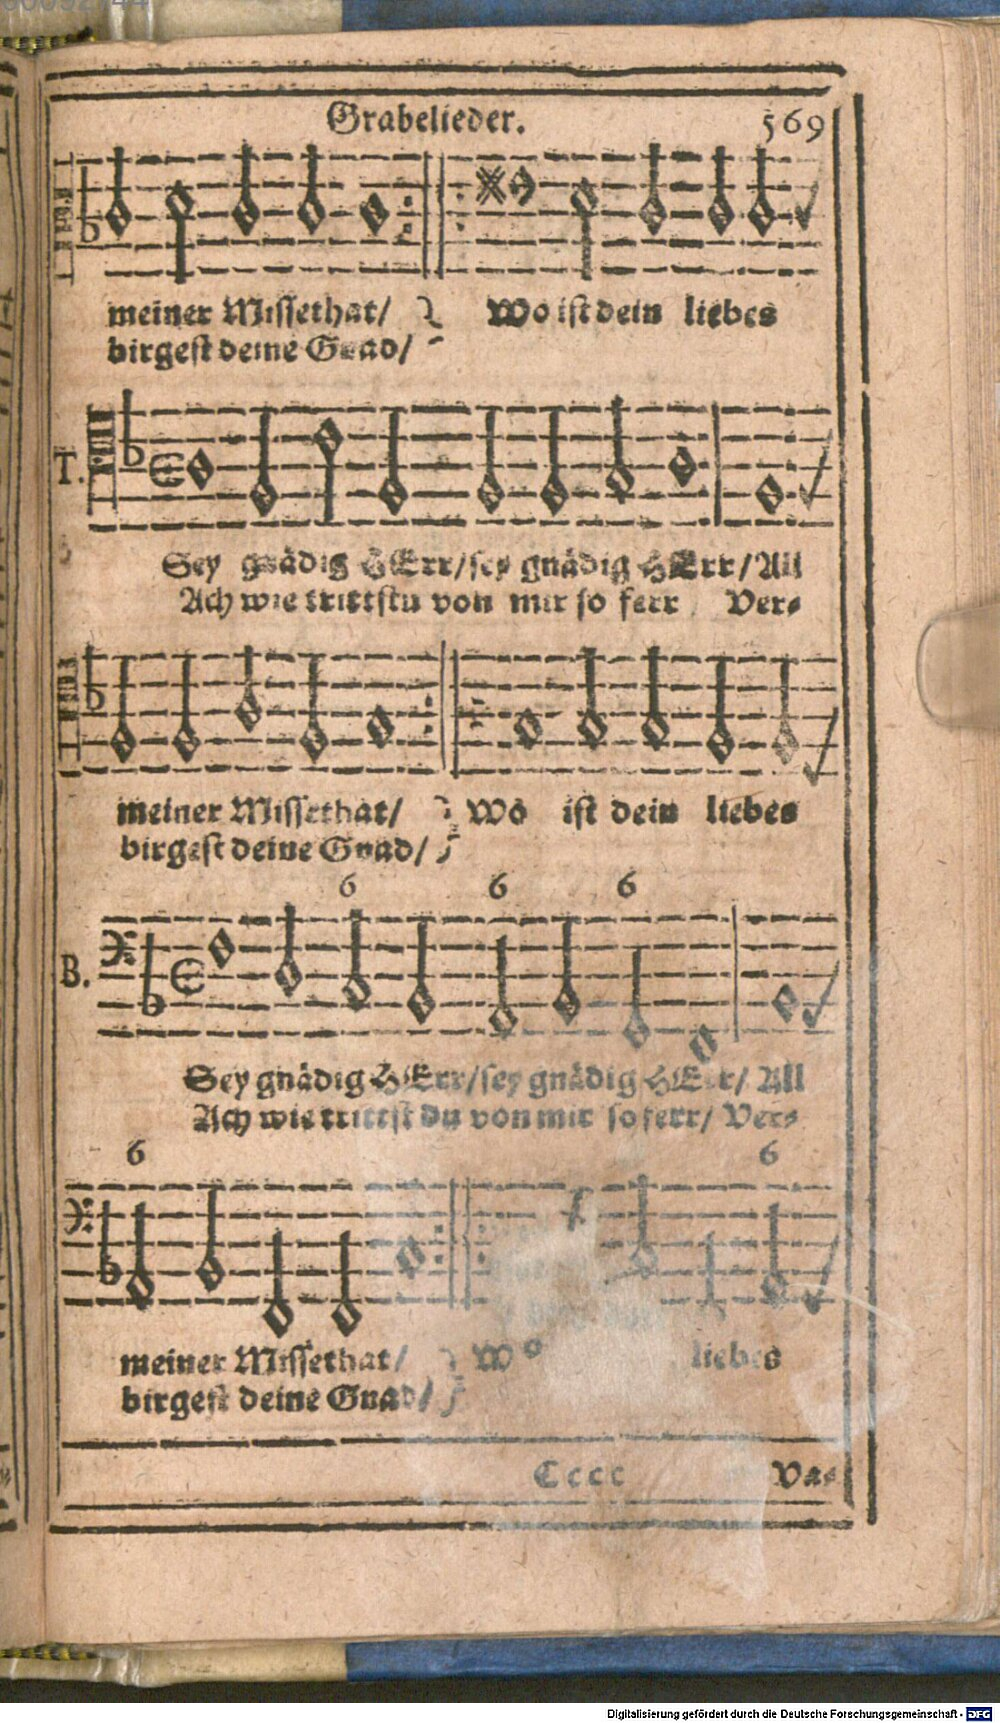 Grabelieder. 569
meiner Missethat/ Wo ist dein liebes
birgest deine Gnad/
T.
Sey gnädig HErr/sey gnädig HErr/All
Ach wie trittstu von mir so ferr Ver-
meiner Missethat/ Wo ist dein liebes
birgest deine Gnad/
6 6 6
B.
Sey gnädig HErr/sey gnädig HErr/ All
Ach wie trittst du von mir so ferr/ Ver-
6 6
meiner Missethat/ Wo liebes
birgest deine Gnad/
Cccc Va-
Digitalisierung gefördert durch die Deutsche Forschungsgemeinschaft - DFG